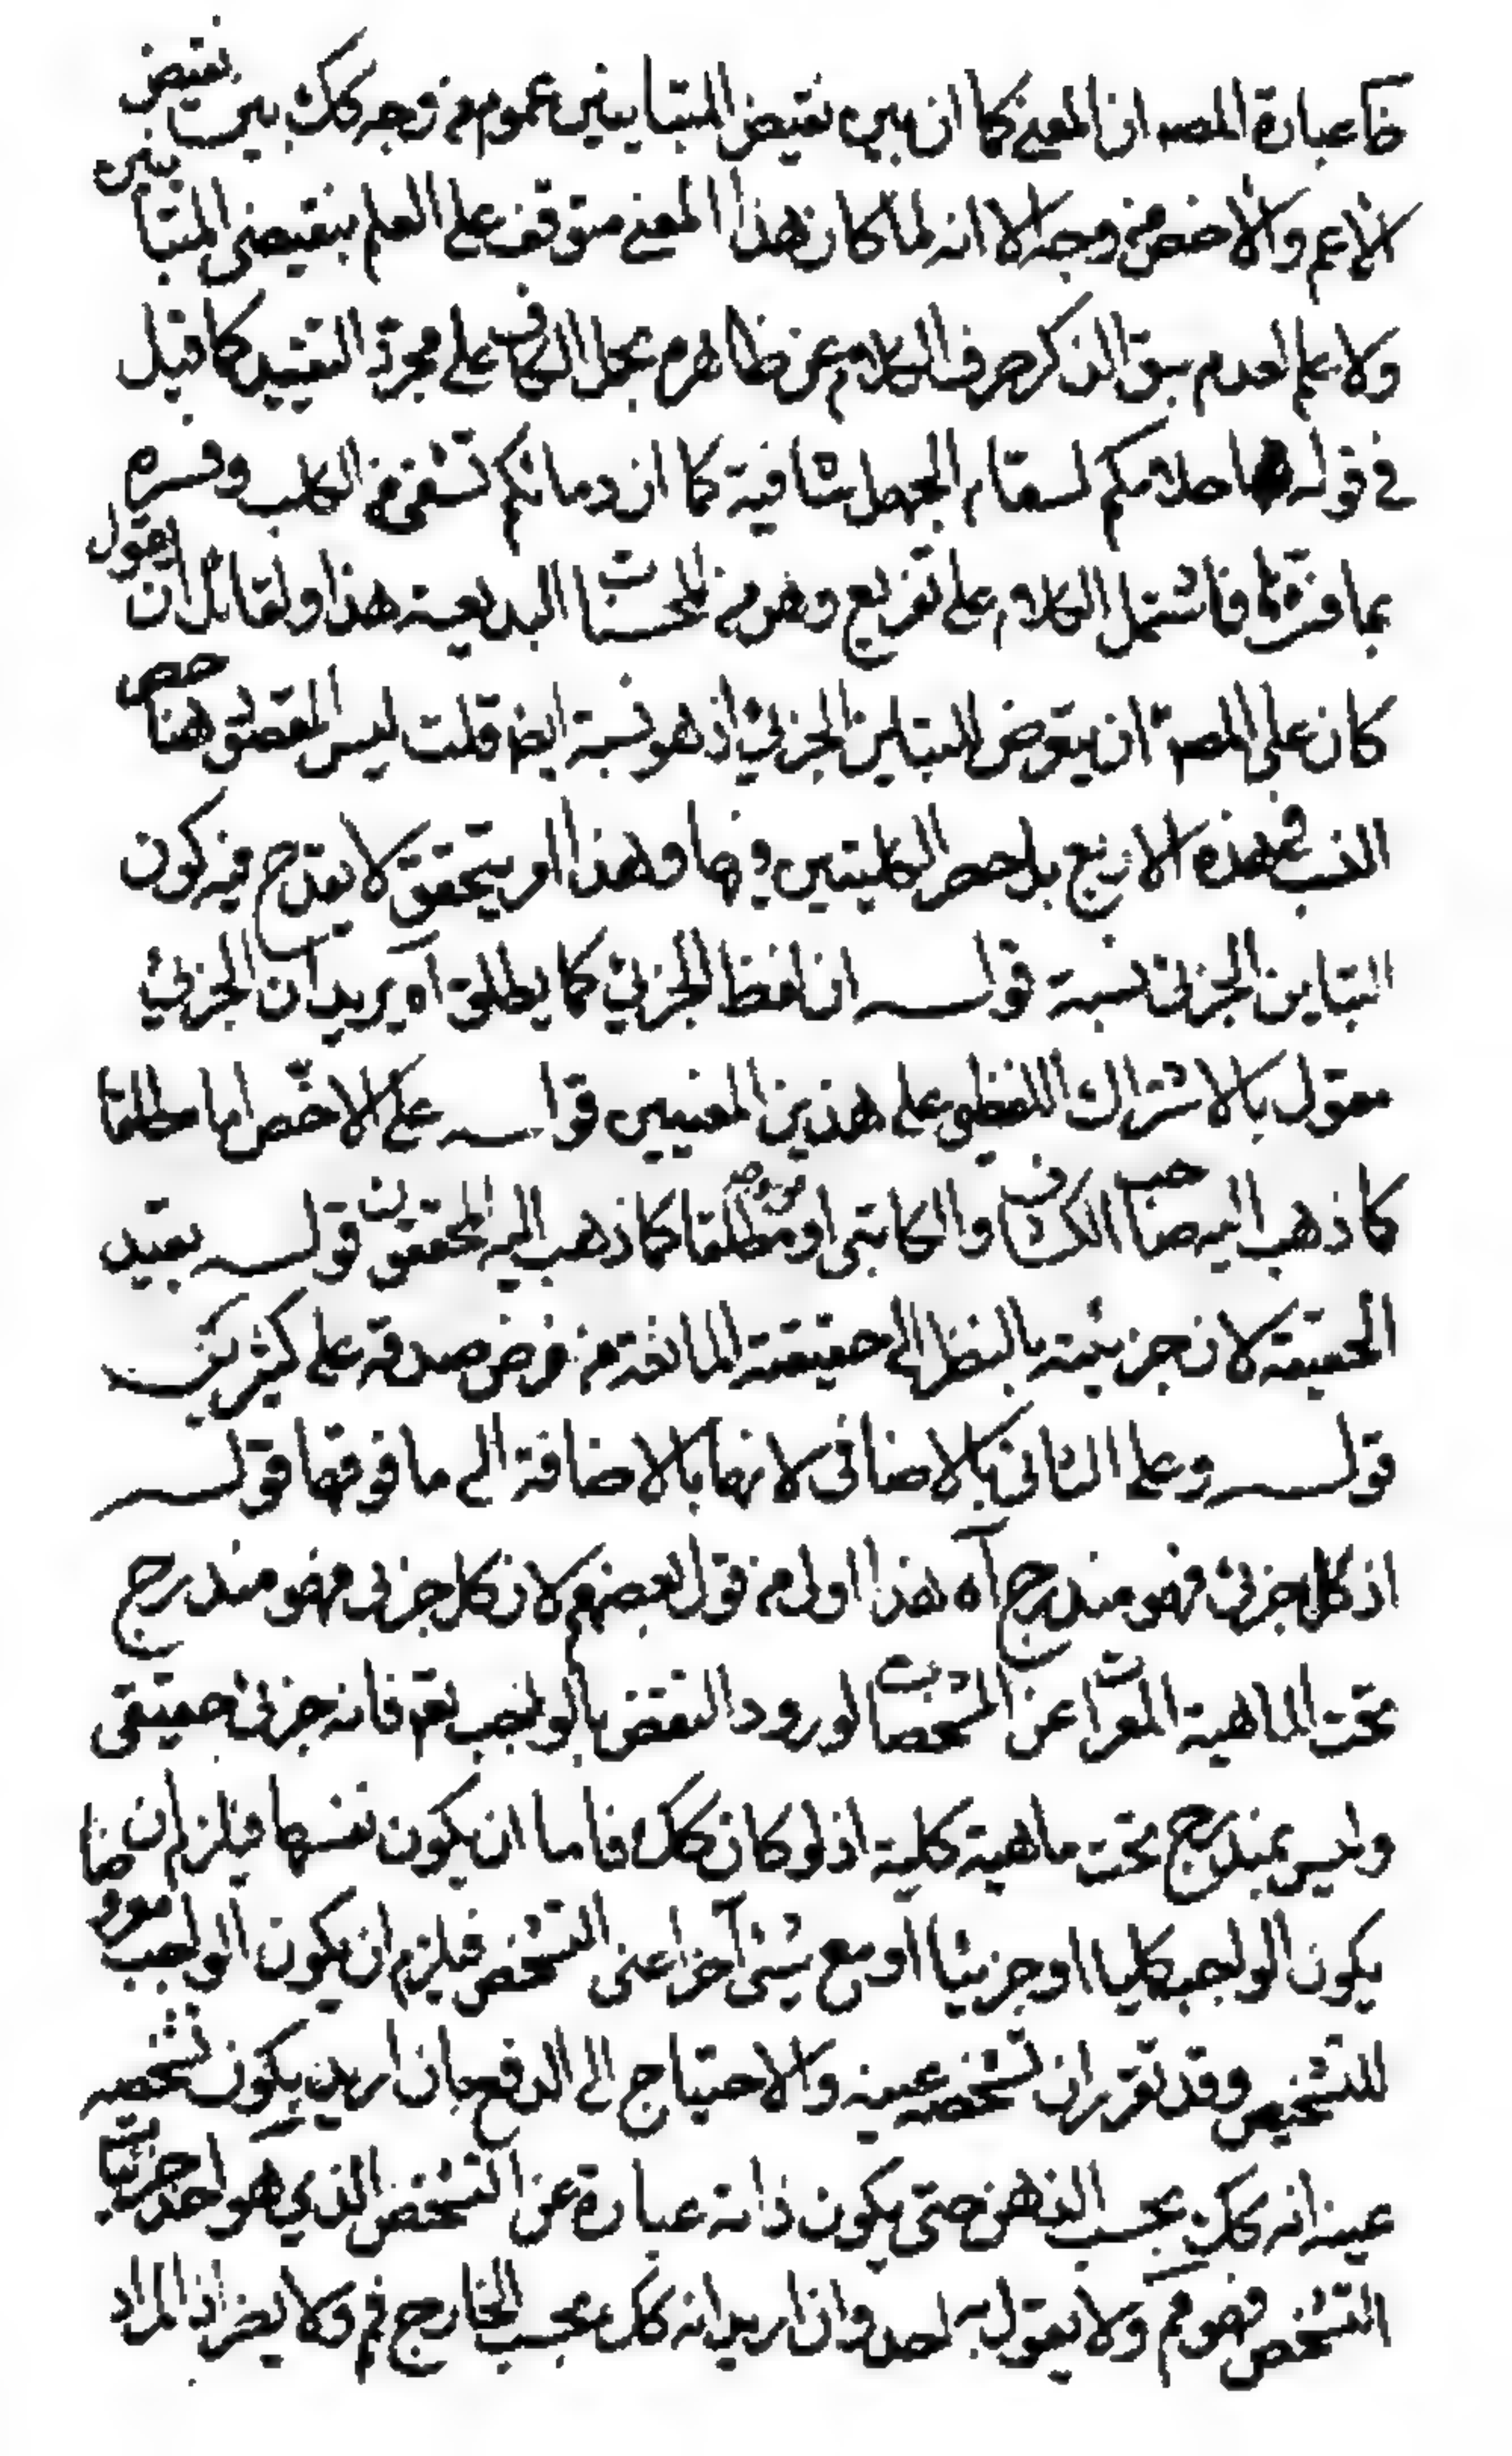 ظا عبارة المصه ان المعنى كما ان بين نقيض المتباينين عموم من وجه كك بين نقيض
الاعم والاخص من وجه الا انه لما كان هذا المعنى متوقف على العلم بنقيضى المتباينين
ولا علم لعدم سبق الذكر صرف الكلام عن ظاهره بحمل الكاف على مجرد التقييد كما قيل
في قوله احلامكم لسقام الجهل شافية كما ان دمائكم تشفى من الكلب وفسره
بما فسر فاشتمل الكلام على تفريع وهو من المحسنات البديعية هذا ولقائل ان يقول
كان على المصه ان يتعرض للتباين الجزئي اذ هو نسبة ايضا قلت ليس المقصود هنا حصر
النسب في هذه الاربع بل حصر الكليتين فيها وهذا امر يتحقق لا يقدح فيه كون
التباين الجزئى نسبة قولـــه ان لفظ الجزئي كما يطلق آه يريد ان الجزئي
مقول بالاشتراك اللفظي على هذين المعنيين قولـــه على الاخص اما مطلقا
كما ذهب اليه صاحب الكشاف والكاتبى او من وجه مطلقا كما ذهب اليه المحققون قولـــه بقيد
الحقيقة لان جزئيته بالنظر الى حقيقته المانعة من فرض صدقه على كثيرين
قولـــه وعلى الثانى بالاضافى لانها بالاضافة الى ما فوقها قولـــه
اذ كل جزئى فهو مندرج آه هذا اولى من قول بعضهم لان كل جزئى فهو مندرج
تحت الماهية المعرات عن المشخصات لورود النقض بالواجب تعه فانه جزئى حقيقى
وليس بمندرج تحت ماهية كلية اذ لو كان كك فاما ان يكون نفسها فيلزم ان
يكون الواجب كليا او جزئيا او مع شئ آخر اعنى التشخص فيلزم ان يكون الواجب معروضا
للتشخيص وقد تقرر ان تشخصه عينه والاحتياج الى الدفع بان اريد بكون تشخصه
عينه انه كك بحسب الذهن حتى يكون ذاته عبارة عن التشخص الذي هو احد جزئيات
التشخص فهو مم ولا يقول به احد وان اريد انه كك بحسب الخارج فم ولا يضر اذ المراد